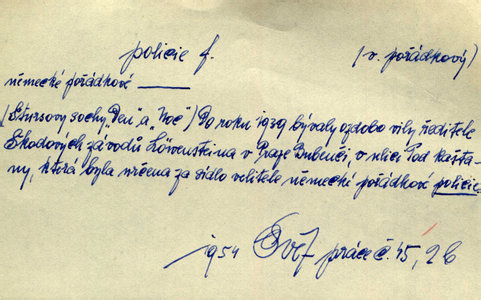 policie f.
(v. pořádkový)
německé pořádkové
(Štursovy sochy „Den" a „Noc") Do roku 1939 bývaly ozdobou vily ředitele
Škodových závodů Löwensteina v Praze Bubenči, v ulici Pod kašta-
ny, která byla určena za sídlo velitele německé pořádkové policie.
1954 Svět práce č. 45, 2b